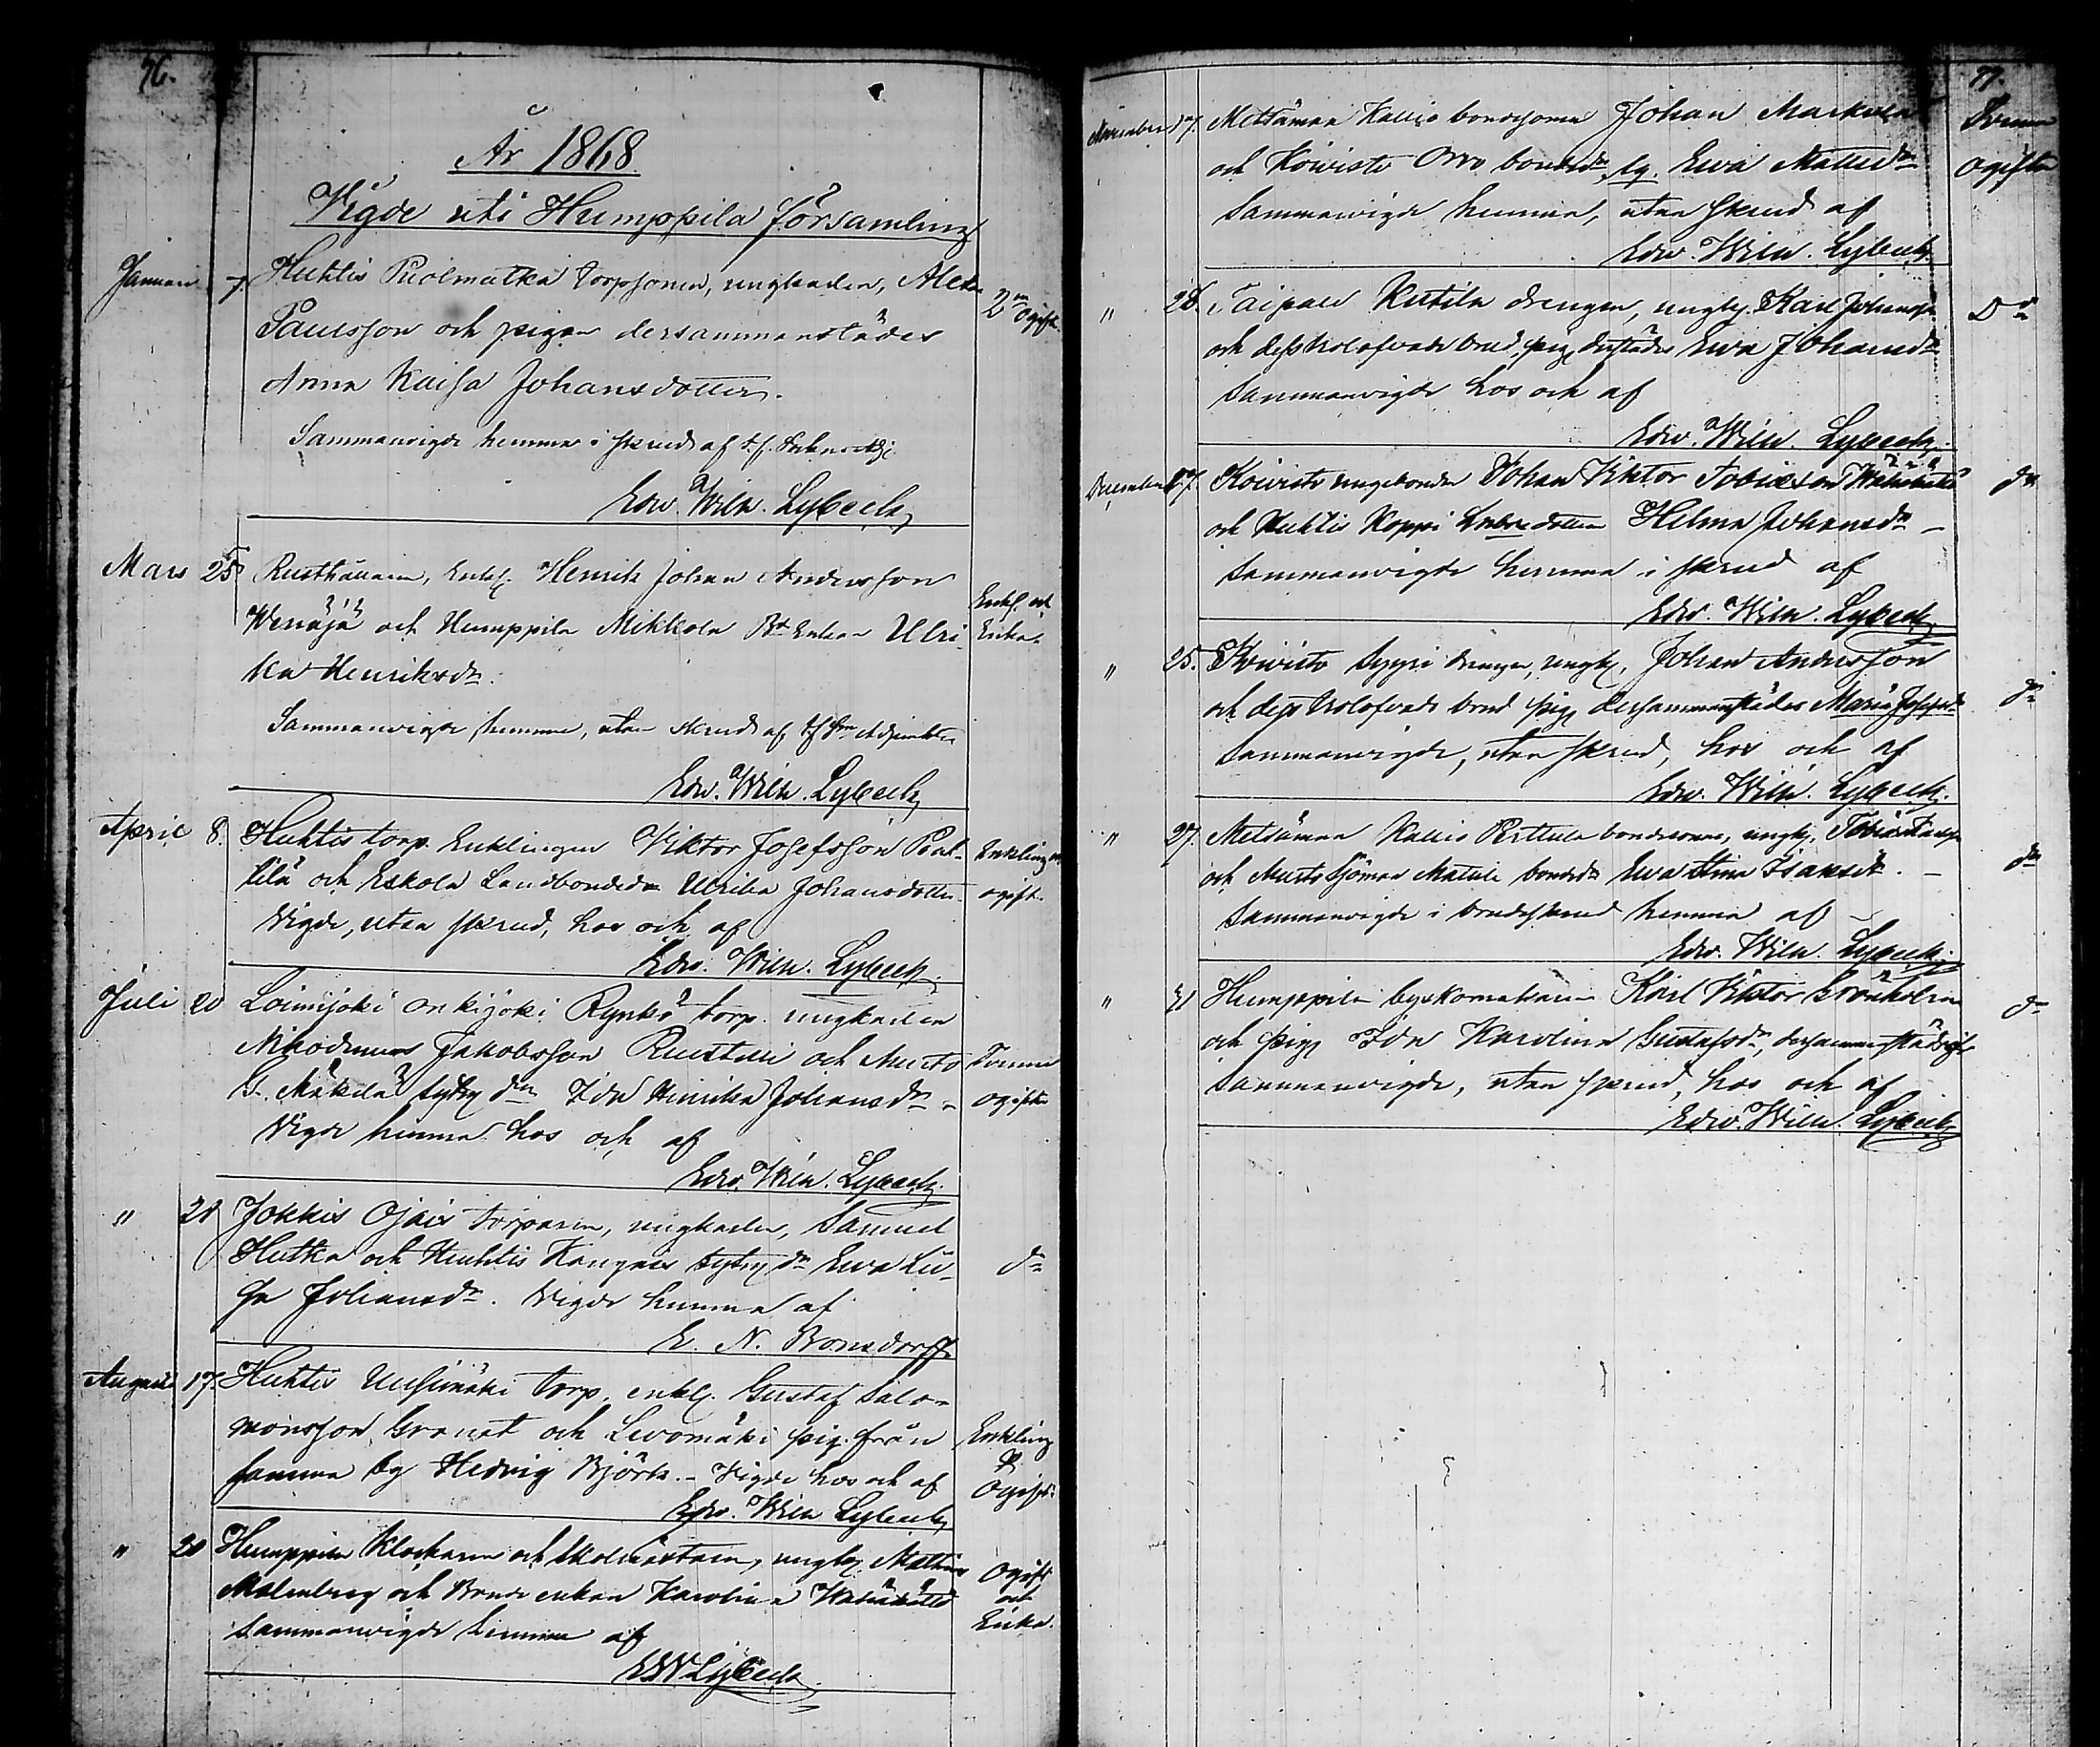 76.
År 1868.
Vigde uti Humppila församling
Januari 7 Huhtis Puolmatka torpsonen, ungkarlen,
Paulsson och pigan dersammanstädes
Anna Kaisa Johansdotter.
Sammanvigde hemma i skrud af
Edw. Wilh. Lybeck
2ne ogift.
Mars 25 Rusthållaren, Enkl. Henrik Johan Andersson
Wenäjä och Humppila Mikkola Enkan Ulri-
ka Henriksdr.
Sammanvigde hemma, utan skrud af
Edw. Wilh. Lybeck
Enkl. och
Enka
April 8. Huhtis torp. Enklingen Viktor Josefsson
tilä och Eskola Landbondedr Ulrika Johansdotter
Vigde, utan skrud, hos och af
Edw. Wilh. Lybeck
Enkling
ogift.
Juli 20 Loimijoki Onkijoki Rynkö torp. ungkarlen
Nikodemus Jakobsson Rusteni och Murto
G. Mäkelä dr Ida Henrika Johansdr
Vigde hemma hos och af
Edw. Wilh. Lybeck.
Tvenne
ogifte
" 21 Jokkis Ojais torparen, ungkarlen, Samuel
Hutka och Huhtis Kangais dr Ewa Li-
sa Johansdr. Vigde hemma af
E. N. Bonsdorff.
dn
Augusti 17. Huhtis Uusimäki torp. enkl. Gustaf Salo-
monsson Granat och Levomäki pig. från
samma by Hedvig Björk. - Vigde hos och af
Edw. Wilh Lybeck
Enkling
&
Ogift.
" 20 Humppila Klockaren och Skolmästaren, ungk. Mathias
Malmberg och Bonde enkan Karolina
Sammanvigde hemma af
EWLybeck
Ogift
och
Enka.
77.
November 17. Metsämaa Kallio bondesonen Johan
och Koivisto Orvo bondedr, Eva Mattsdr
Sammanvigde hemma, utan skrud af
Edw. Wilh. Lybeck
Tvenne
ogifte
" 28. Taipale Kutila drengen, ungk. Karl Johansson
och dess trolofvade brud, pig. derstädes Ewa Johansdr
Sammanvigde hos och af
Edw. Wilh. Lybeck.
Dn
December 17. Koivisto ungebonden Johan Viktor Tobiasson
och Huhtis Koppi dottern Helma Johansdr
Sammanvigde hemma i skrud af
Edw. Wilh. Lybeck
dn
" 25. Koivisto Seppi drengen, ungk. Johan Andersson
och dess trolofvade brud pig. dersammanstädes Maria Josefsdr
Sammanvigde, utan skrud, hos och af
Edw. Wilh. Lybeck.
dn
" 27. Metsämaa Kallio Perttula bondesonen, ungk.
och Murto Sjöman Mattila bondedr Eva Stina Isaksdr.
Sammanvigde i brudskrud hemma af
Edw. Wilh. Lybeck.
dn
" 31 Humppila byskomakaren Karl Viktor Grönholm
och pig. Ida Karolina Gustafsdr, dersammanstädes
Sammanvigde, utan skrud, hos och af
Edw. Wilh. Lybeck
dn